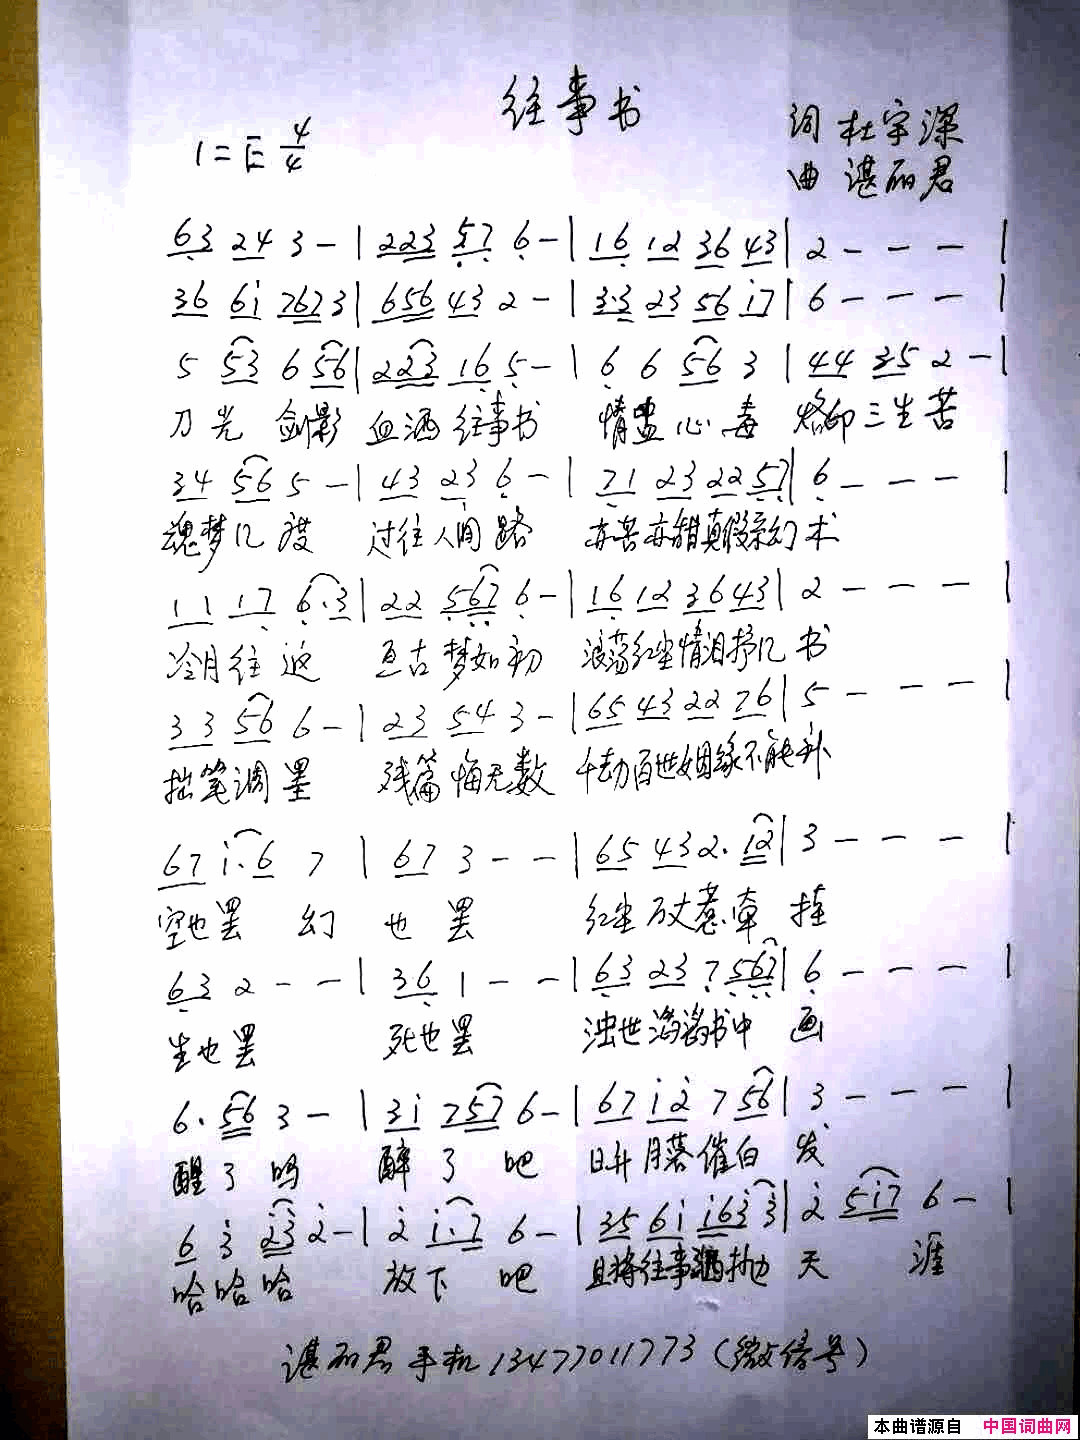 往事书
1=E 4/4
词 杜宇深
曲 谌丽君
63 24 3 - | 223 57 6 - | 16 12 36 43 | 2 - - - |
36 6i 767 3 | 656 43 2 - | 3·3 23 56 i7 | 6 - - - |
5 53 6 56 | 223 16 5 - | 6 6 56 3 | 44 35 2 - |
刀光 剑影 血洒往事书 情蛊心毒 烙印三生苦
34 56 5 - | 43 23 6 - | 71 23 22 57 | 6 - - - |
魂梦几度 过往人间路 亦苦亦错真假亲幻术
11 17 6·3 | 22 567 6 - | 16 12 36 43 | 2 - - - |
冷月往返 亘古梦如初 浪荡红尘情泪抒几书
33 56 6 - | 23 54 3 - | 65 43 22 76 | 5 - - - |
拙笔调墨 残篇悔无数 千劫百世姻缘不能补
67 i·6 7 | 67 3 - - | 65 43 2· i2 | 3 - - - |
空也罢 幻也罢 红尘万丈惹牵挂
63 2 - - | 36 1 - - | 63 23 7 567 | 6 - - - |
生也罢 死也罢 浊世滔滔书中画
6· 56 3 - | 3i 7 57 6 - | 67 i2 7 56 | 3 - - - |
醒了吗 醉了吧 日升月落催白发
6 3 23 2 - | 2 i·7 6 - | 35 6i i63 3 | 2 5i7 6 - |
哈哈哈 放下吧 且将往事洒抛天涯
谌丽君手机13477011773(微信号)
本曲谱源自 中国词曲网